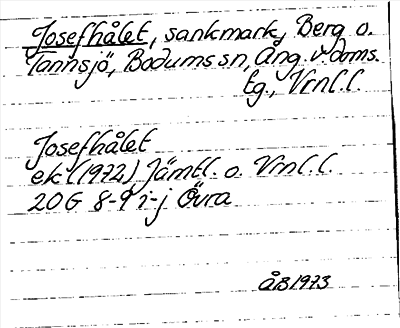 Josefhålet, sankmark, Berg o.
Tannsjö, Bodums sn, Ång. v. doms.
tg., Vrnl.l.
Josefhålet
ek (1972) Jämtl. o. Vrnl.l.
20G 8-9 i-j Övra
ÅB 1973